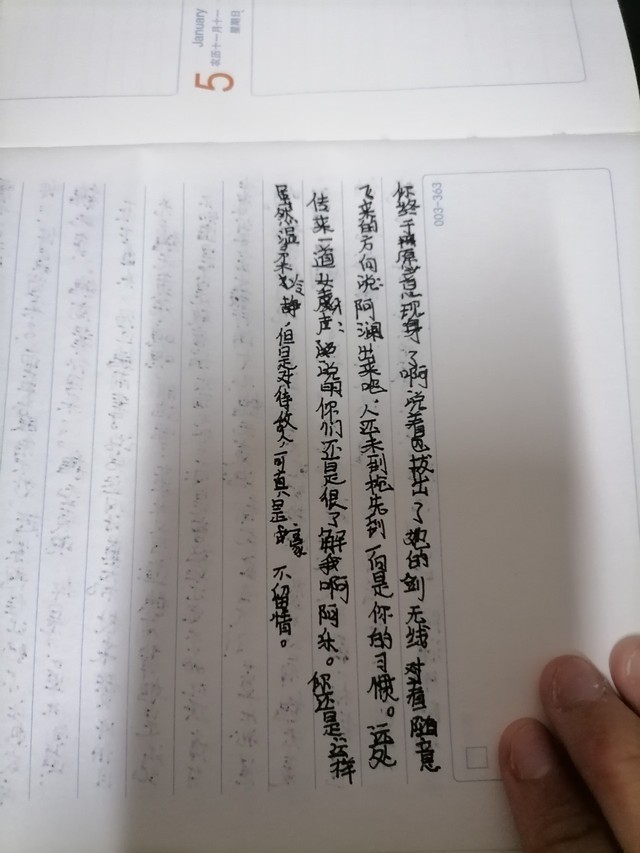 January
5
农历十一月十一
星期日
003-363
你终于愿意现身了啊说着拔出了她的剑无线对着随意
飞来的方向说阿澜出来吧.人还未到先到一向是你的习惯。远处
传来一道女声:说明你们还是很了解我啊阿乐。你还是这样
虽然温柔冷静,但是对待敌人可真是毫不留情。